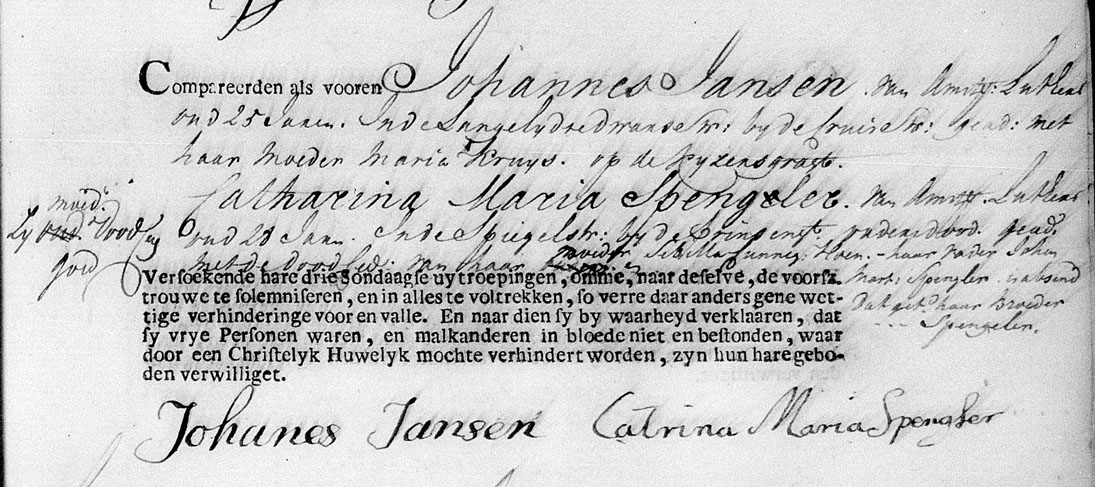 Compareerden als vooren Johannes Jansen van Amst: Luthers
oud 25 Jaren. In de Langelydsedwarsstr: by de Spiegelstr: geads: met
haar Moeder Maria Kruys. op de Kyzersgragt.
Catharina Maria Spengeler. van Amst: Luthers
oud 23 Jaren. In de Spiegelstr: by de Prinsengt: geads.
met de van haar moeder haar vader Johan
Spengeler is absend
haar Broeder
Spengeler.
moed:
dood
Versoekende hare drie sondaagse uytroepingen, omme, naar deselve, de voorsz.
trouwe te solemniseren, en in alles te voltrekken, so verre daar anders gene wet-
tige verhinderinge voor en valle. En naar dien sy by waarheyd verklaaren, dat
sy vrye Personen waren, en malkanderen in bloede niet en bestonden, waar
door een Christelyk Huwelyk mochte verhindert worden, zyn hun hare gebo-
den verwilliget.
Johanes Jansen Catrina Maria Spengler